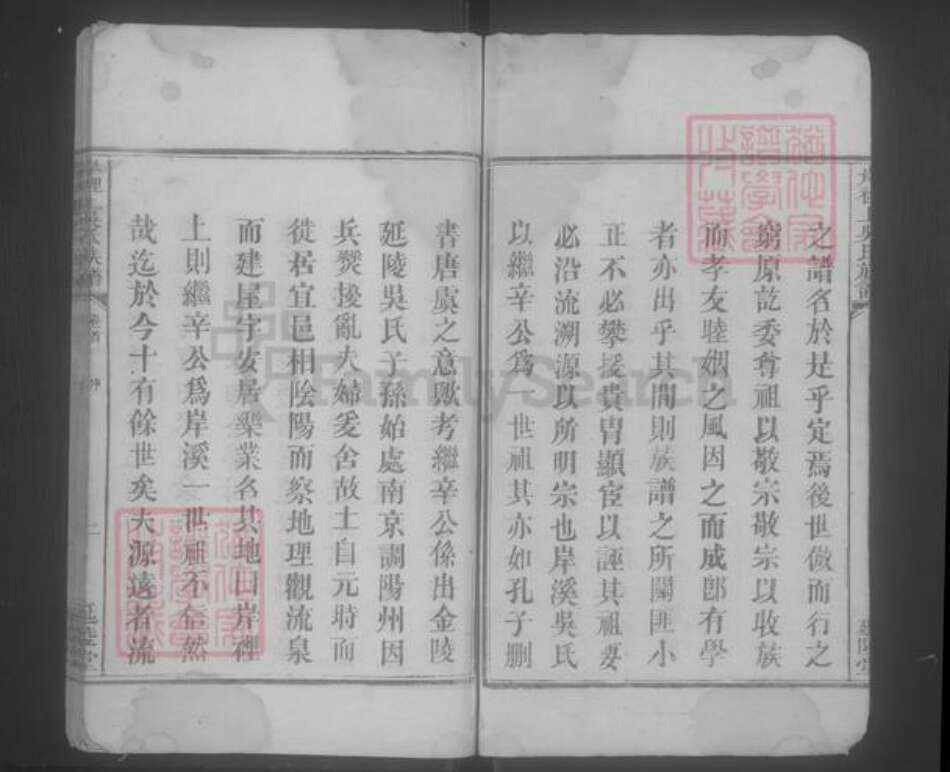 之譜名於是乎定焉後世倣而行之
窮原訖委尊祖以敬宗敬宗以收族
而孝友睦姻之風因之而成卽有學
者亦出乎其間則族譜之所關匪小
正不必攀援貴胄顯宦以誣其祖要
必沿流溯源以所明宗也岸溪吳氏
以繼辛公爲一世祖其亦如孔子刪
書唐虞之意歟考繼辛公係出金陵
延陵吳氏子孫始處南京調陽州因
兵燹擾亂夫婦爰舍故土自元時而
徙居宜邑相陰陽而察地理觀流泉
而建屋宇安居樂業名其地曰岸裡
上則繼辛公爲岸溪一世祖不信然
哉迄於今十有餘世矣大源遠者流
卷首
二
延陵堂
FamilySearch